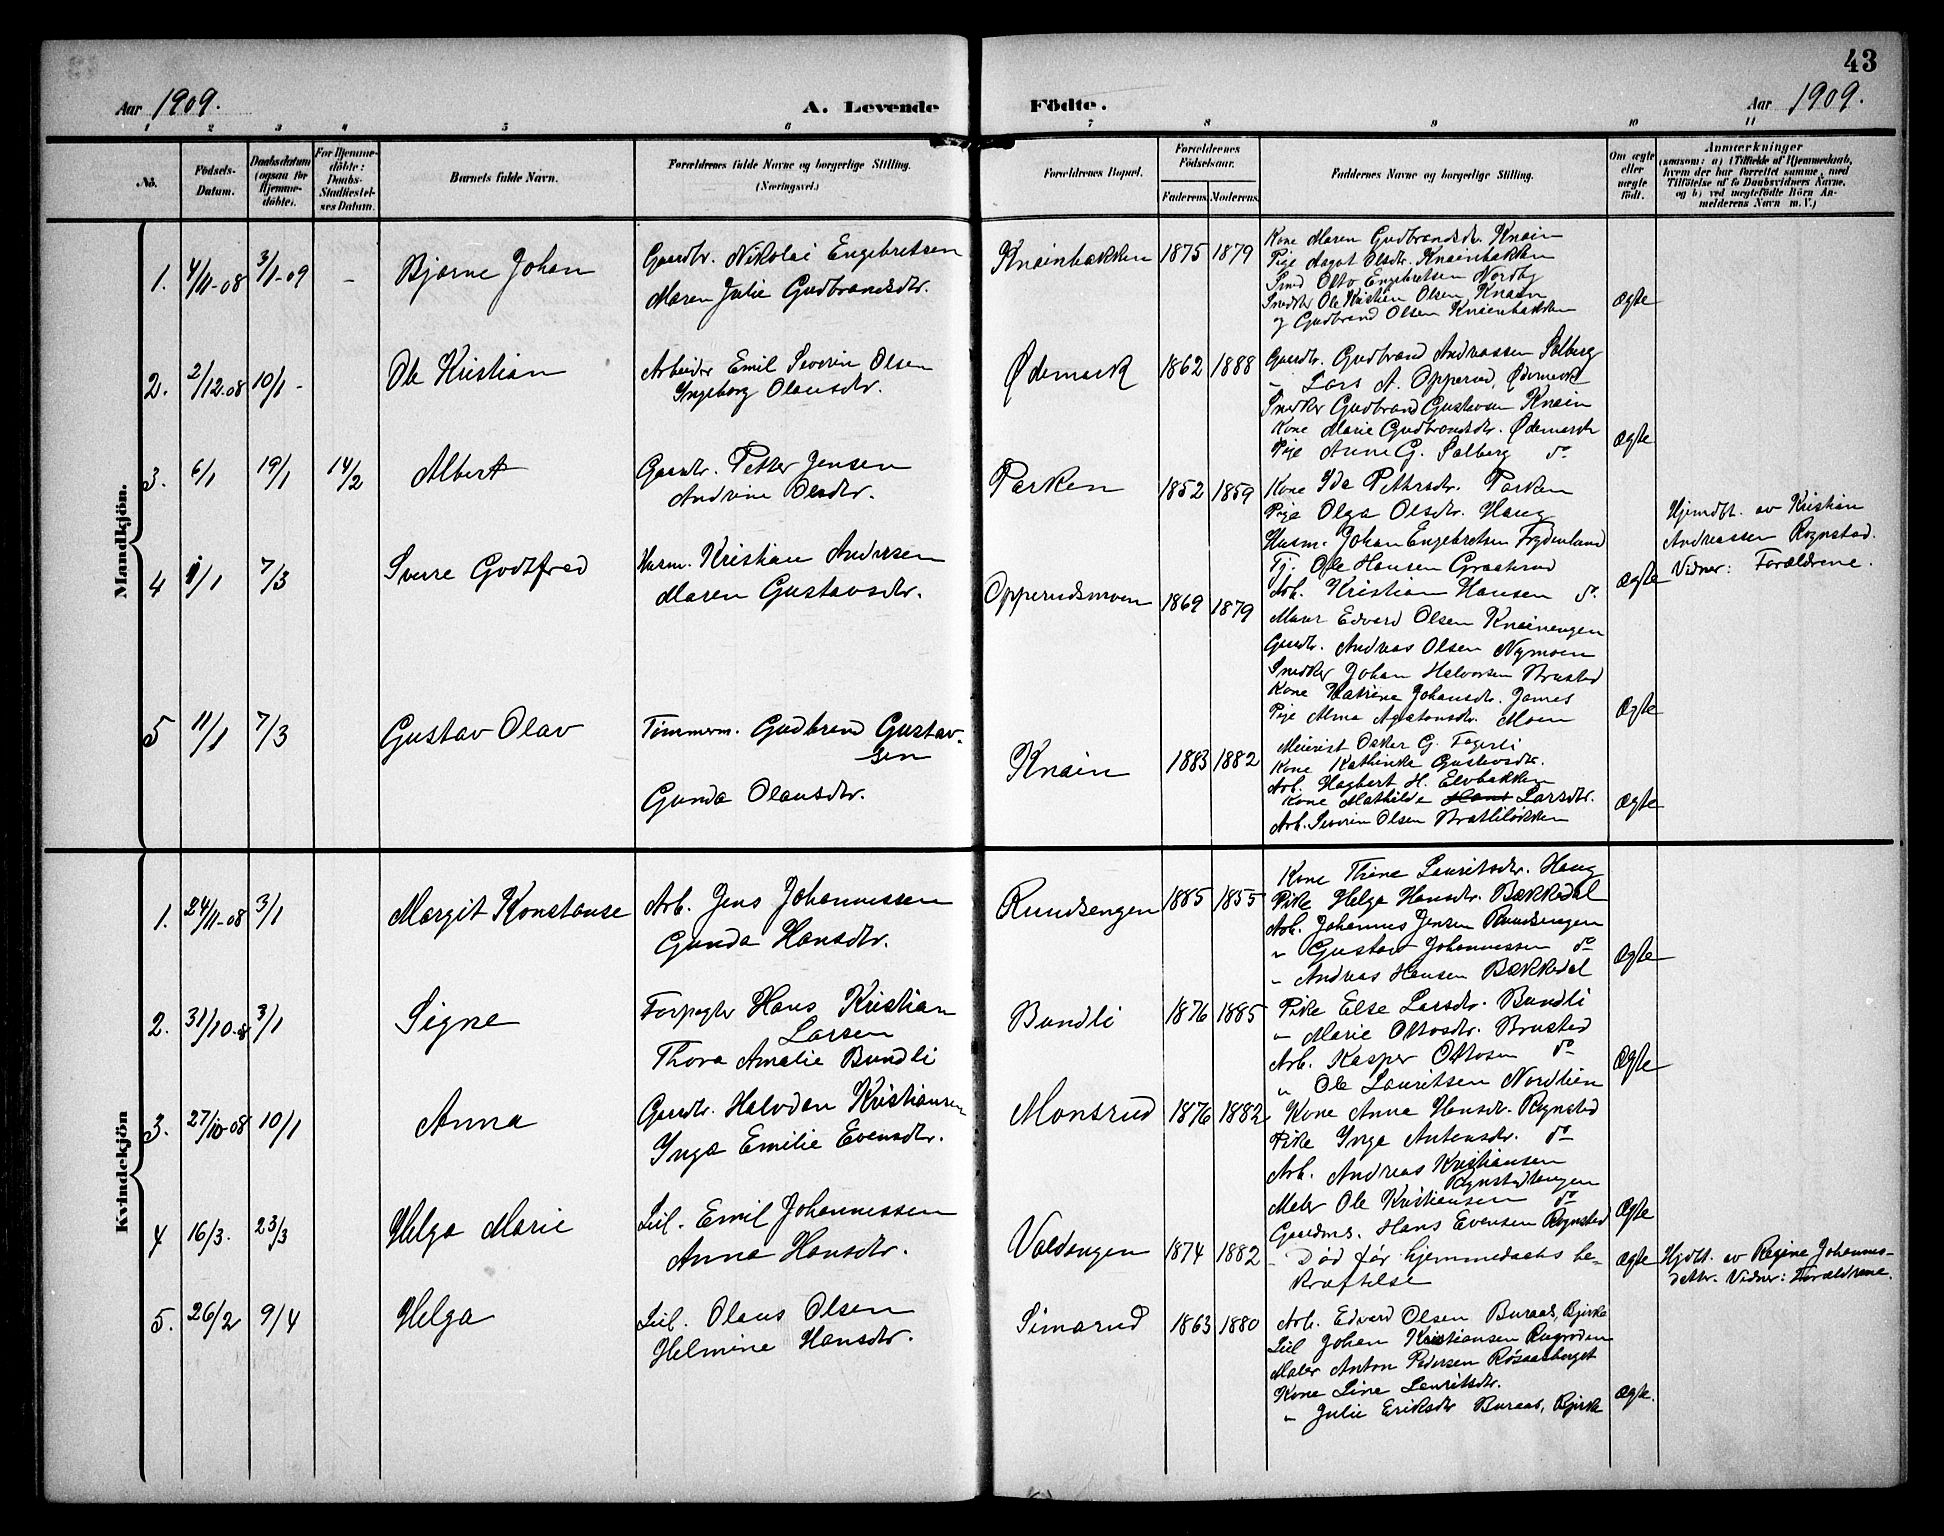 43
Aar 1909.
A. Levende
Födte.
Aar 1909.
1 2 3 4 5 6 7 8 9 10 11
No.
Födsels-
Datum.
Daabsdatum
(ogsaa for
Hjemme-
döbte).
For Hjemme-
döbte:
Daabs-
Stadfæstel-
ses Datum.
Barnets fulde Navn.
Forældrenes fulde Navne og borgerlige Stilling.
(Næringsvei.)
Forældrenes Bopæl.
Forældrenes
Födselsaar.
Faderens. Moderens.
Faddernes Navne og borgerlige Stilling.
Om ægte
eller
uægte
födt.
Anmærkninger
(saasom: a) i Tilfælde af Hjemmedaab,
hvem der har forrettet samme, med
Tilföielse af to Daabsvidners Navne,
og b) ved uægtefödte Börn An-
melderens Navn m. V.)
Mandkjön.
1. 4/11-08 3/1-09 - Bjarne Johan
Gaardbr. Nikolai Engebretsen
Maren Julie Gudbrandsdtr.
Knainbakken 1875 1879
Kone Maren Gudbrandsdtr. Knain
Pige Aagot Olsdtr. Knainbakken
Smed Otto Engebretsen Nordby
Snedker Ole Kristian Olsen Knain
og Gudbrand Olsen Knainbakken
Ægte
2. 2/12-08 10/1 - Ole Kristian
Arbeider Emil Severin Olsen
Ingeborg Olausdtr.
Ødemark 1862 1888
Gaardbr. Gudbrand Andreassen Solberg
" Lars A. Opperud, Ødemark
Snedker Gudbrand Gustavsen Knain
Kone Marie Gudbrandsdtr. Ødemark
Pige Anne G. Solberg do
Ægte
3. 6/1 19/1 14/2 Albert
Gaardbr. Petter Jensen
Andrine Olsdtr.
Parken 1852 1859
Kone Ida Pettersdtr. Parken
Pige Olga Olsdtr. Haug
Husm. Johan Engebretsen Frydenlund
Tj. Ole Hansen Graaterud
Arb. Kristian Hansen do
Ægte
Hjemdbt. av Kristian
Andreassen Rognstad.
Vidner: Forældrene.
4 1/1 7/3 Sverre Godtfred
Husm. Kristian Andersen
Maren Gustavsdtr.
Opperudsmoen 1869 1879
Murer Edvard Olsen Knainengen
Gaardbr. Andreas Olsen Nymoen
Snedker Johan Halvorsen Brustad
Kone Katrine Johansdtr. James
Pige Alma Agatonsdtr. Moen
Ægte
5 11/1 7/3 Gustav Olav
Tømmerm. Gudbrand Gustav-
sen
Gunda Olausdtr.
Knain 1883 1882
Meierist Oskar G. Fagerli
Kone Kathinka Gustavsdtr.
Arb. Hagbart H. Elvbakken
Kone Mathilde Hans Larsdtr.
Arb. Severin Olsen Bratliløkken
Ægte
Kvindekjön
1. 24/11-08 3/1 Margit Konstanse
Arb. Jens Johannessen
Gunda Hansdtr.
Rundsengen 1885 1855
Kone Thina Lauritsdtr. Haug
Pike Helga Hansdtr. Bækkedal
Arb. Johannes Jensen Rundsengen
" Gustav Johannessen do
" Andreas Hansen Bækkedal
Ægte
2. 31/10-08 3/1 Signe
Forpagter Hans Kristian
Larsen
Thora Amalie Bundli
Bundli 1876 1885
Pike Else Larsdtr. Bundli
" Marie Ottosdtr. Brustad
Arb. Kasper Ottosen do
" Ole Lauritsen Nordlien
Ægte
3. 27/10-08 10/1 Anna
Gaardbr. Halvdan Kristiansen
Inga Emilie Evensdtr.
Monsrud 1876 1882
Kone Anna Hansdtr. Rognstad
Pike Inga Antonsdtr. do
Arb. Andreas Kristiansen
Rognstadengen
Maler Ole Kristiansen do
Gaardms. Hans Evensen Rognstad
Ægte
4 16/3. 23/3 Helga Marie
Leil. Emil Johannessen
Anna Hansdtr.
Valdangen 1874 1882
- Død før hjemmedaabs be-
kræftelse
Ægte
Hjdbt. av Regine Johannes-
datter. Vidner: Forældrene.
5. 26/2 9/4 Helga
Leil. Olaus Olsen
Helmine Hansdtr.
Simarud 1863 1880
Arb. Edvard Olsen Buraas, Bjirke
Leil Johan Kristiansen Rugroden
Maler Anton Pedersen Røsaasberget
Kone Line Lauritsdtr.
" Julie Eriksdtr Buraas, Bjirke
Ægte.